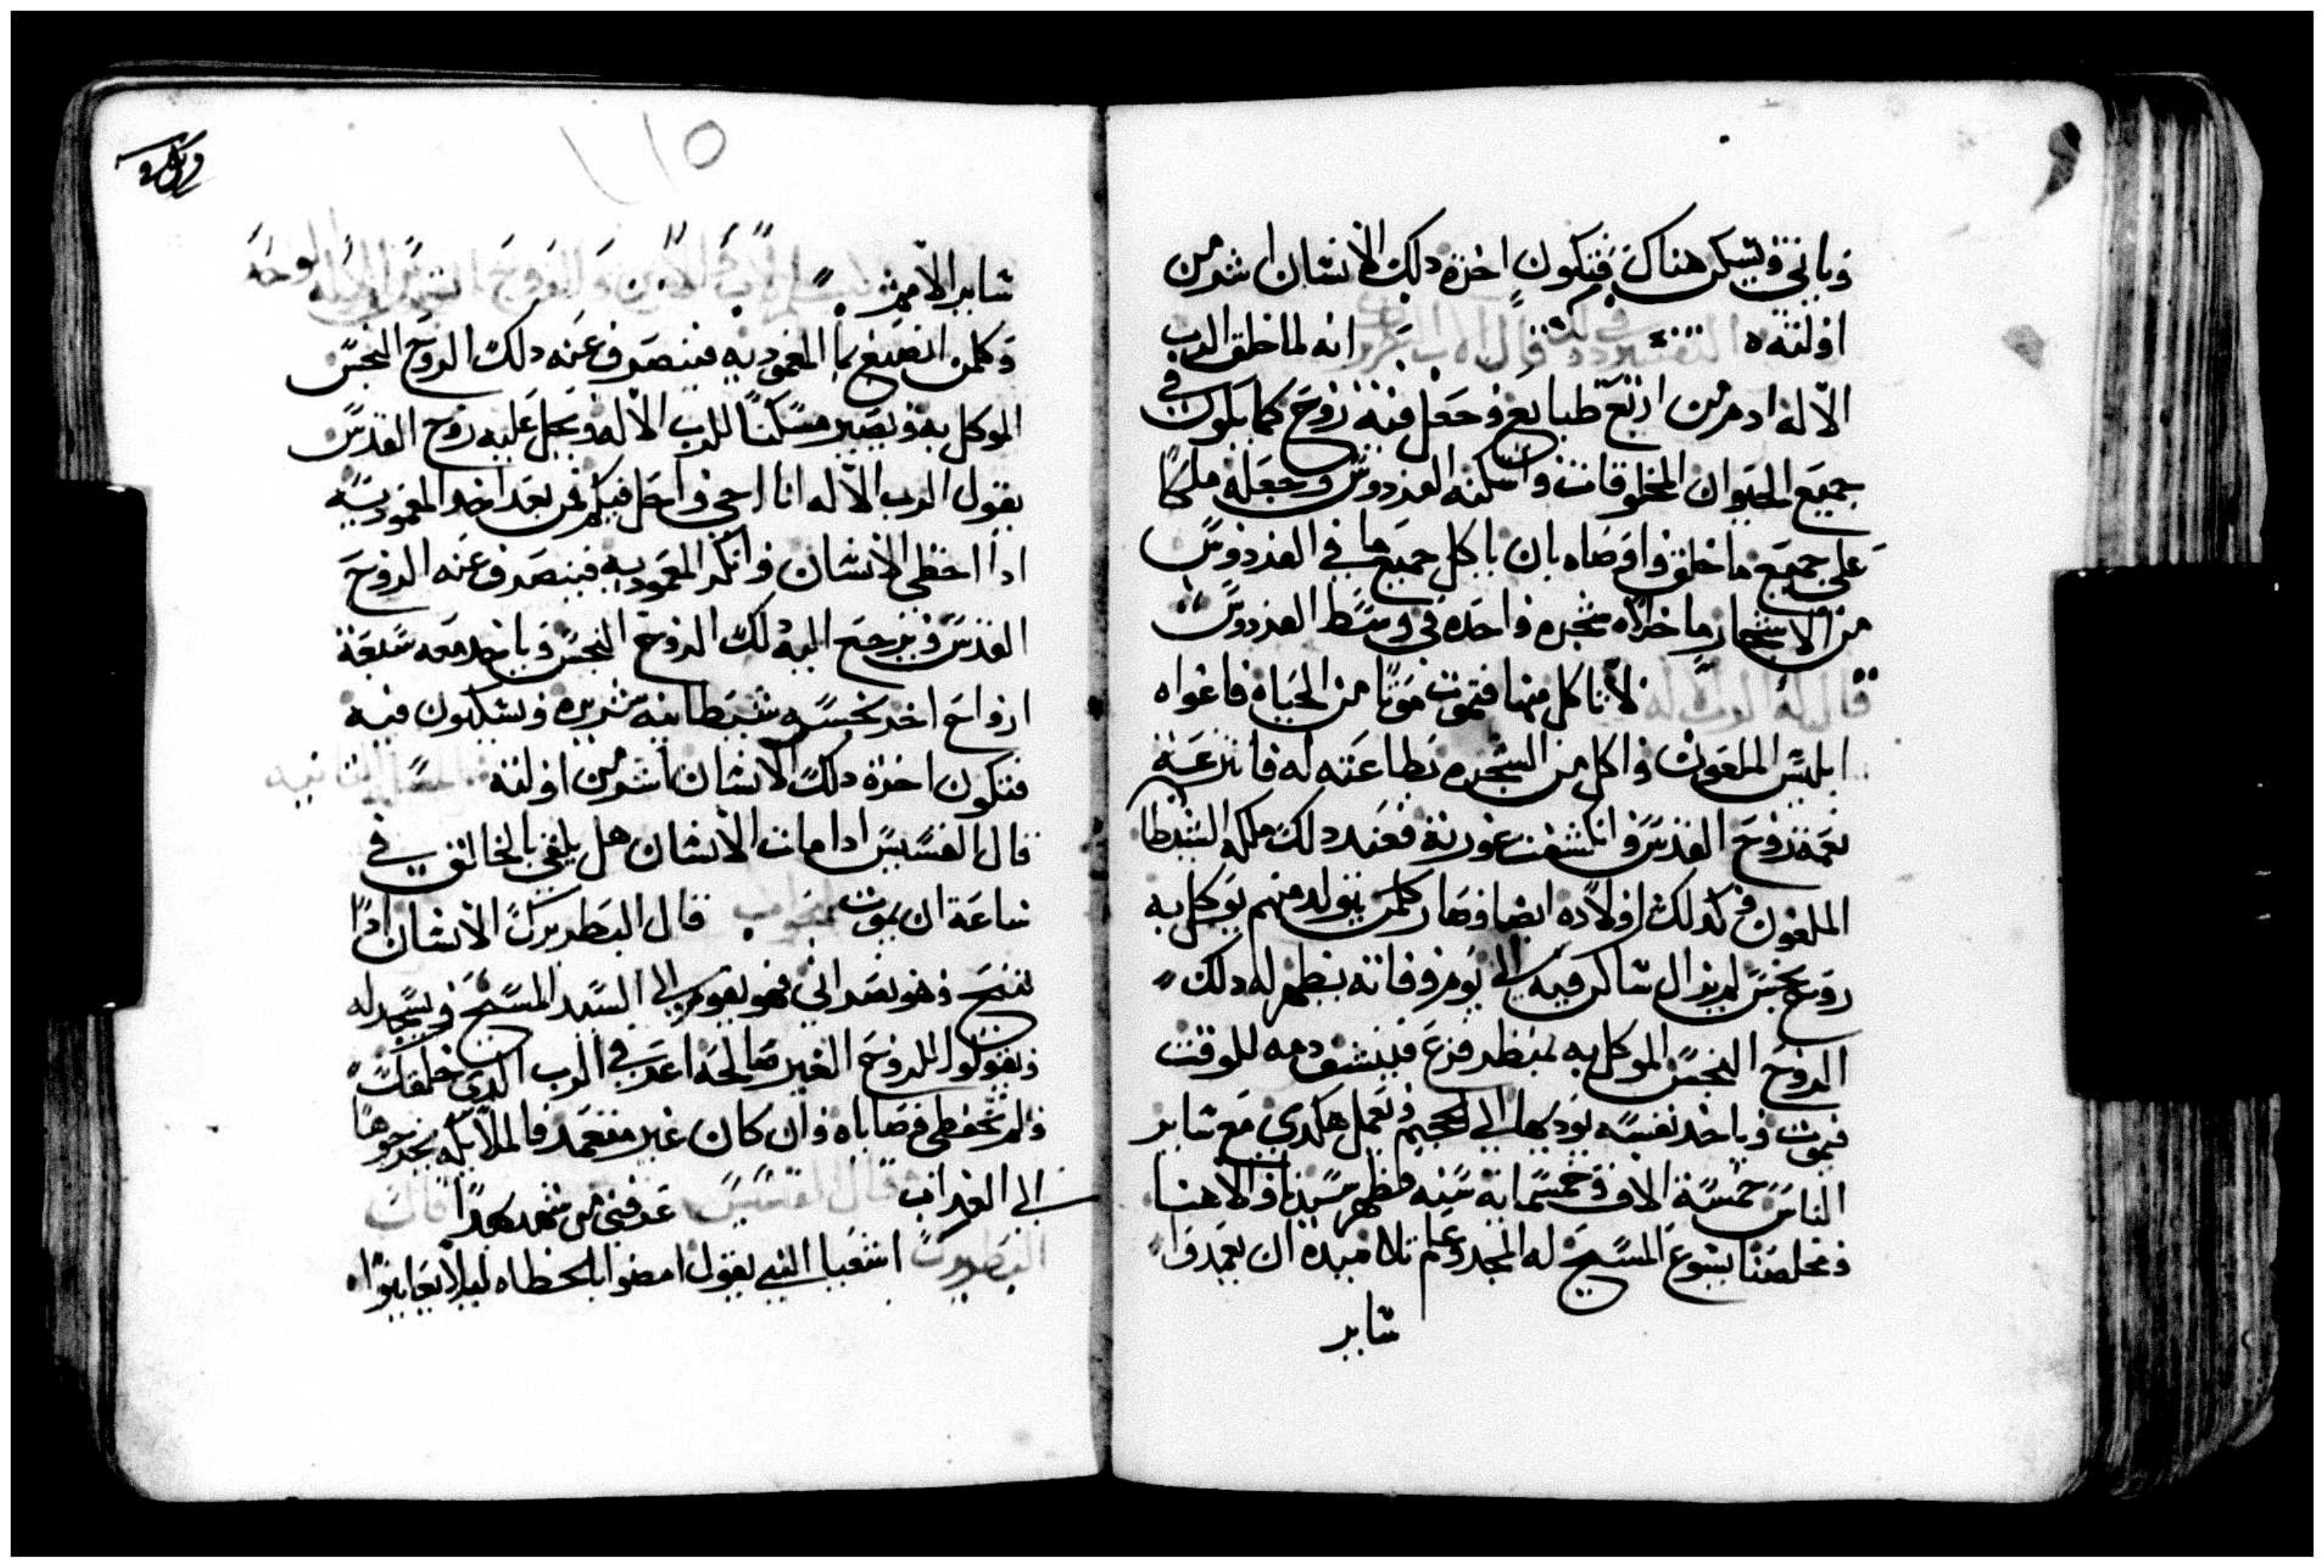 وياتي ويسكن هناك فتكون اخرة دلك الانسان اشر من
اولته التفسير في دلك قال الاب البطريرك انه لما خلق الرب
الاله ادم من اربع طبايع وجعل فيه روح كما يكون في
جميع الحيوان المخلوقات واسكنه الفردوس وجعله ملكا
على جميع ما خلق واوصاه بان ياكل جميع ما في الفردوس
من الاشجار ما خلاه شجره واحده في وسط الفردوس
قال له الرب لا تاكل منها فتموت موتا من الحياه فاغواه
ابليس الملعون واكل من الشجره بطاعته له فانترعت
نعمة روح القدس وانكشفت عورته فعند دلك ملكه الشيطا
الملعون وكدلك اولاده ايضا وصار كلمن يتولد منهم يوكل به
روح نجس لم يزال ساكن فيه الى يوم وفاته يظهر له دلك
الروح النجس الموكل به بمنظر فزع فينشف دمه للوقت
فيموت وياخد نفسه يوديها الى الجحيم ويعمل هكدي مع ساير
الناس خمسة الاف وخمسمايه سنه فظهر سيدنا والاهنا
ومخلصنا يسوع المسيح له المجد وعلم تلاميده ان يعمدوا
ساير
١١٥
ساير الامم بسم الاب والابن والروح القدس الاله الواحد
وكلمن انصبغ بما المعموديه فينصرف عنه دلك الروح النجس
الموكل به ويصير مسكنا للرب الاله ويحل عليه روح القدس
يقول الرب الاله انا اجي واحل فيكم فمن بعد اخد المعموديه
ادا اخطى الانسان وانكر المعموديه فينصرف عنه الروح
القدس ويرجع اليه دلك الروح النجس وياخد معه سبعة
ارواح اخر نجسه شيطانيه شريره ويسكنون فيه
فتكون اخرة دلك الانسان اشر من اولته المساله الثانيه
قال القسيس ادا مات الانسان هل يلتقي بالخالق في
ساعة ان يموت الجواب قال البطريرك الانسان ادا
تنيح وهو نصراني فهو يقوم الى السيد المسيح ويسجد له
ويقولوا للروح الغير صالحه اعرفي الرب الدي خلقك
ولم تحفظي وصاياه وان كان غير متعمد فالملايكه يخرجوها
الى العداب قال القسيس عرفني من شهد بهدا قال
البطريرك اشعيا النبي يقول امضوا بالخطاه ليلا يعاينوا